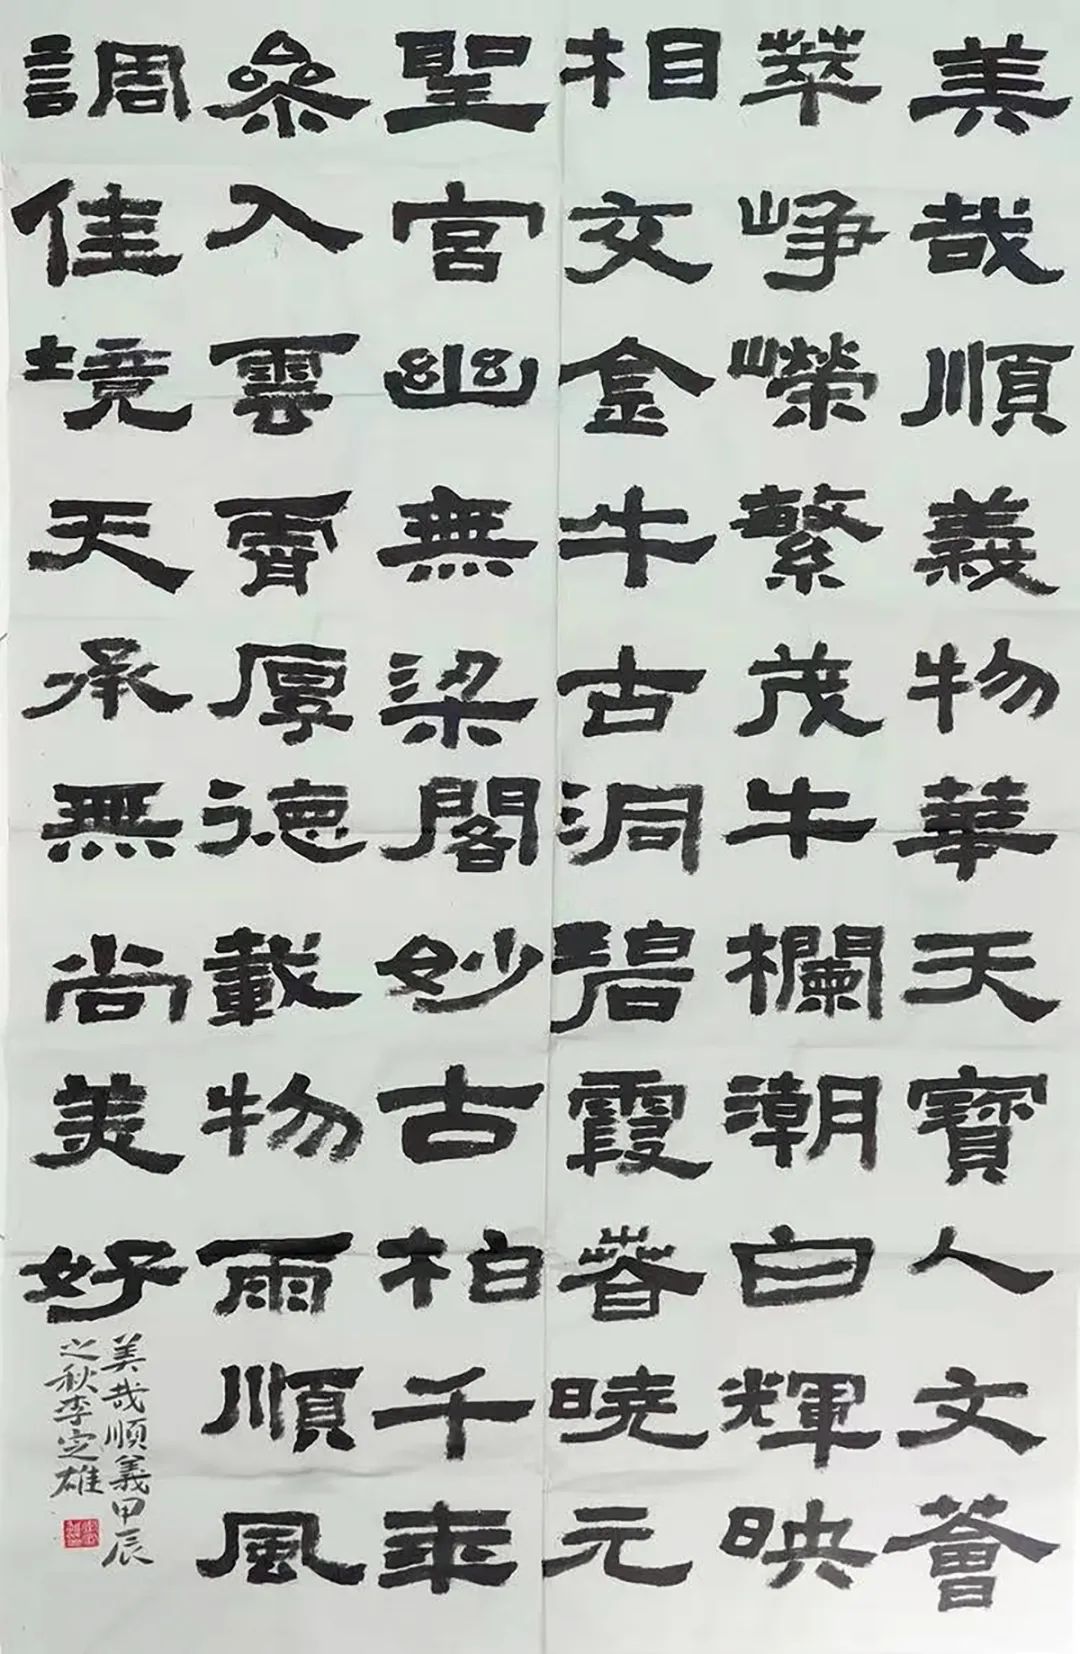 美哉順義物華天寶人文薈
萃崢嶸繁茂牛欄潮白輝映
相交金牛古洞碧霞春曉元
聖宮幽無梁閣妙古柏千年
參入雲霄厚德載物雨順風
調佳境天承無尚美好
美哉順義甲辰
之秋李定雄